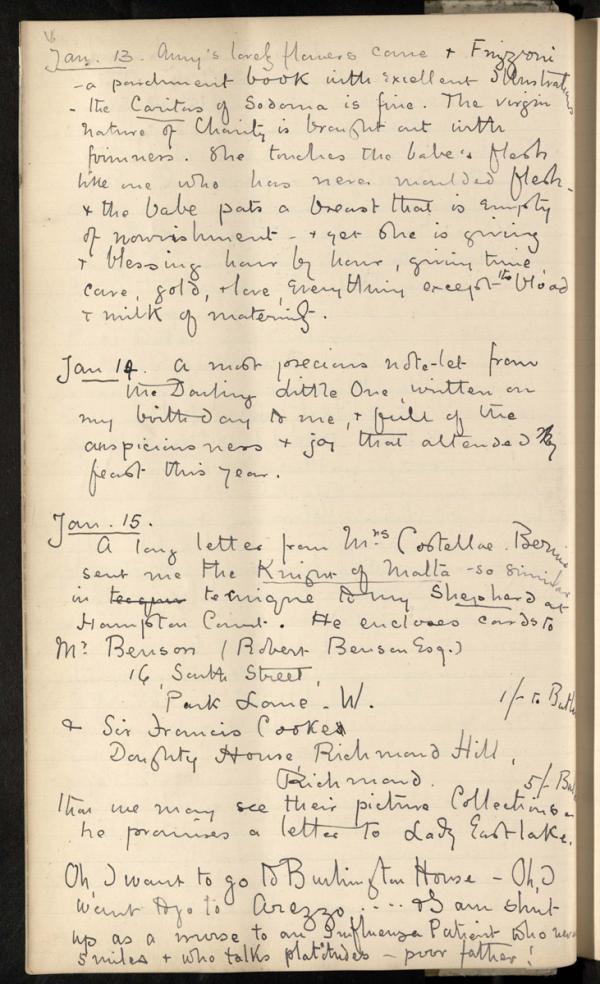 Jan. 13. Amy's lovely flowers come & Frizzoni
- a parchment book with excellent Illustrations
- the Caritas of Sodoma is fine. The virgin
nature of Charity is brought out with
firmness. She touches the babe's flesh
like one who has never moulded flesh -
& the babe pats a breast that is empty
of nourishment - & yet she is giving
& blessing hour by hour, giving time,
care, gold, & love, everything except to blood
& milk of maternity.
Jan 14. A most precious note-let from
the Darling Little One, written on
my birthday to me, & full of the
auspiciousness & joy that attended my
feast this year.
Jan. 15.
A long letter from Mrs Costelloe. Bernie
sent me the Knight of Malta - so similar
in technique to my Shepherd at
Hampton Court. He encloses cards to
Mr Benson (Robert Benson Esq.)
16, South Street,
Park Lane. W.
1/- to Butler
& Sir Francis Cookes
Doughty House, Richmond Hill,
Richmond.
5/-
that we may see their picture Collections -
he promises a letter to Lady Eastlake.
Oh, I want to go to Burlington House - Oh, I
want to go to Arezzo .... & I am shut
up as a nurse to an Influenza Patient who never
smiles & who talks platitudes - poor father!